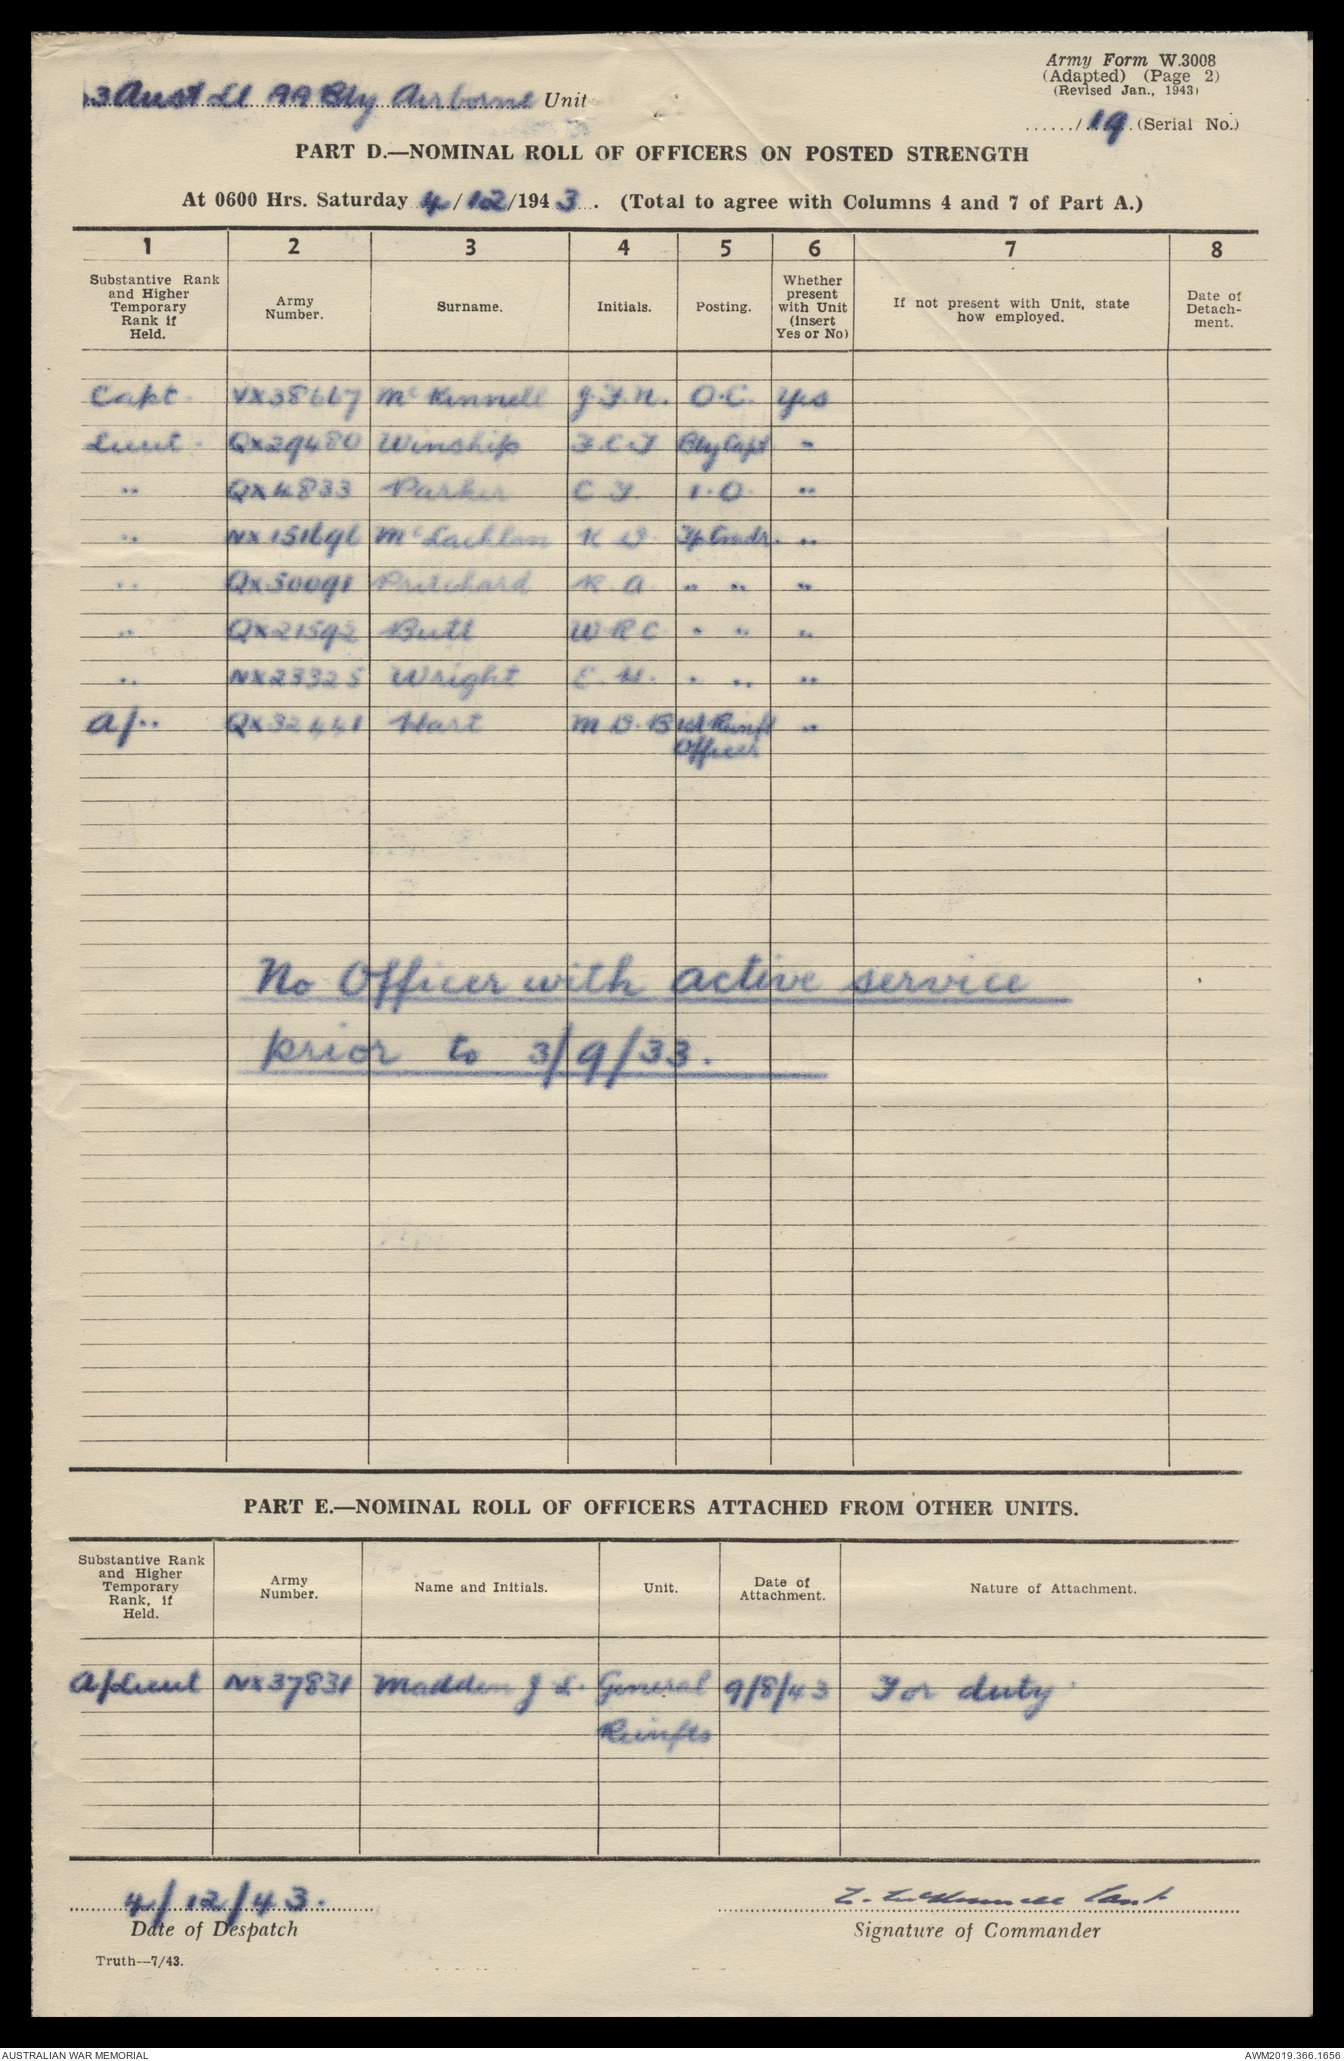 Army Form W.3008
(Adapted) (Page 2)
(Revised Jan., 1943)
3 Aust Lt AA Bty Airborne Unit
....../19. (Serial No.)
PART D.—NOMINAL ROLL OF OFFICERS ON POSTED STRENGTH
At 0600 Hrs. Saturday 4/12/1943. (Total to agree with Columns 4 and 7 of Part A.)
1 2 3 4 5 6 7 8
Substantive Rank and Higher Temporary Rank if Held. Army Number. Surname. Initials. Posting. Whether present with Unit (insert Yes or No) If not present with Unit, state how employed. Date of Detach-ment.
Capt. VX38667 McKinnell J.F.N. O.C. Yes
Lieut. QX29480 Winship F.C.T Bty Capt "
" QX4833 Parker C F. I.O. "
" McLachlan K D. Tp Comdr. "
" QX50091 Pritchard R A. " " "
" QX21592 Butt W R C " " "
" NX23325 Wright E. H. " " "
A/ " QX32441 Hart M B. B 1st Reinft "
Officer
No Officer with active service
prior to 3/9/33.
PART E.—NOMINAL ROLL OF OFFICERS ATTACHED FROM OTHER UNITS.
Substantive Rank and Higher Temporary Rank, if Held. Army Number. Name and Initials. Unit. Date of Attachment. Nature of Attachment.
A/Lieut NX37831 Madden J L. General 9/8/43 For duty
Reinfts
4/12/43.
McKinnell Capt
Date of Despatch
Signature of Commander
Truth—7/43.
AUSTRALIAN WAR MEMORIAL
AWM2019.366.1656